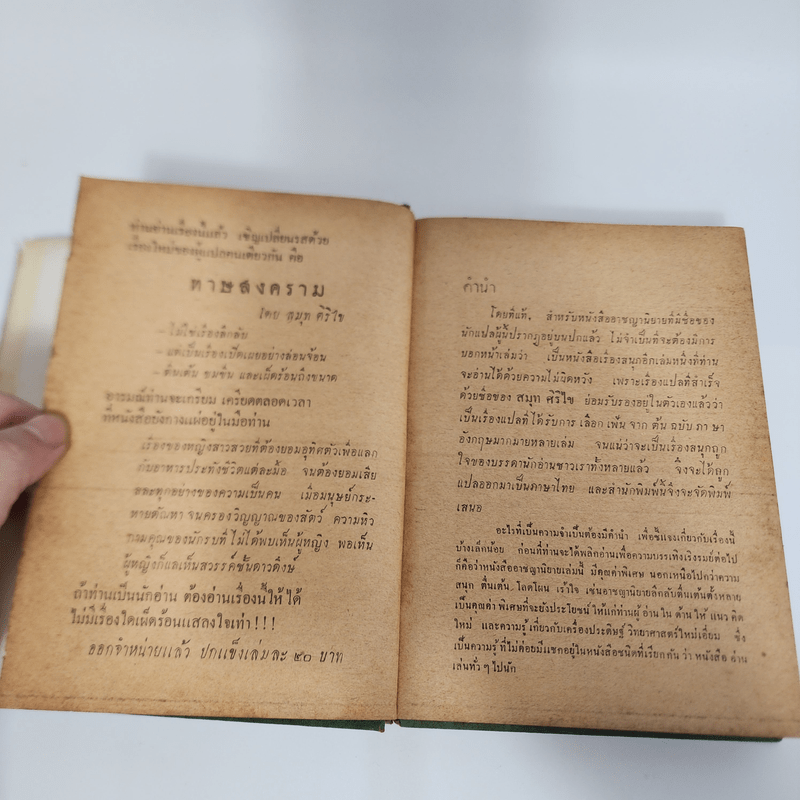 ท่านอ่านเรื่องนี้แล้ว เชิญเปลี่ยนรสด้วย
เรื่องใหม่ของผู้แปลคนเดียวกัน คือ
ทาษสงคราม
โดย สมุท ศิริไข
– ไม่ใช่เรื่องลึกลับ
– แต่เป็นเรื่องเปิดเผยอย่างล่อนจ้อน
– ตื่นเต้น ขมขื่น และเผ็ดร้อนถึงขนาด
อารมณ์ท่านจะเกรียม เครียดตลอดเวลา
ที่หนังสือยังกางแผ่อยู่ในมือท่าน
เรื่องของหญิงสาวสวยที่ต้องยอมอุทิศตัวเพื่อแลก
กับอาหารประทังชีวิตแต่ละมื้อ จนต้องยอมเสีย
สละทุกอย่างของความเป็นคน เมื่อมนุษย์กระ-
หายตัณหา จนครองวิญญาณของสัตว์ ความหิว
กามคุณของนักรบที่ ไม่ได้พบเห็นผู้หญิง พอเห็น
ผู้หญิงก็แลเห็นสวรรค์ชั้นดาวดึงษ์
ถ้าท่านเป็นนักอ่าน ต้องอ่านเรื่องนี้ให้ได้
ไม่มีเรื่องใดเผ็ดร้อนแสลงใจเท่า ! ! !
ออกจำหน่ายแล้ว ปกแข็งเล่มละ ๒๐ บาท
คำนำ
โดยที่แท้. สำหรับหนังสืออาชญานิยายที่มีชื่อของ
นักแปลผู้นี้ปรากฎอยู่บนปกแล้ว ไม่จำเป็นที่จะต้องมีการ
บอกหน้าเล่มว่า เป็นหนังสือเรื่องสนุกอีกเล่มหนึ่งที่ท่าน
จะอ่านได้ด้วยความไม่ผิดหวัง เพราะเรื่องแปลที่สำเร็จ
ด้วยชื่อของ สมุท ศิริไข ย่อมรับรองอยู่ในตัวเองแล้วว่า
เป็นเรื่องแปลที่ได้รับการ เลือก เฟ้น จาก ต้น ฉบับ ภา ษา
อังกฤษมากมายหลายเล่ม จนแน่ว่าจะเป็นเรื่องสนุกถูก
ใจของบรรดานักอ่านชาวเราทั้งหลายแล้ว จึงจะได้ถูก
แปลออกมาเป็นภาษาไทย และสำนักพิมพ์นี้จึงจะจัดพิมพ์
เสนอ
อะไรที่เป็นความจำเป็นต้องมีคำนำ เพื่อชี้แจงเกี่ยวกับเรื่องนี้
บ้างเล็กน้อย ก่อนที่ท่านจะได้พลิกอ่านเพื่อความบรรเทิงเริงรมย์ต่อไป
ก็คือว่าหนังสืออาชญานิยายเล่มนี้ มีคุณค่าพิเศษ นอกเหนือไปกว่าความ
สนุก ตื่นเต้น โลดโผน เร้าใจ เช่นอาชญานิยายลึกลับตื่นเต้นทั้งหลาย
เป็นคุณค่า พิเศษที่จะยังประโยชน์ ให้แก่ท่านผู้ อ่าน ใน ด้าน ให้ แนว คิด
ใหม่ และความรู้เกี่ยวกับเครื่องประดิษฐ์ วิทยาศาสตร์ใหม่เอี่ยม ซึ่ง
เป็นความรู้ ที่ไม่ค่อยมีแซกอยู่ในหนังสือชนิดที่เรียก กัน ว่า หนังสือ อ่าน
เล่นทั่ว ๆ ไปนัก